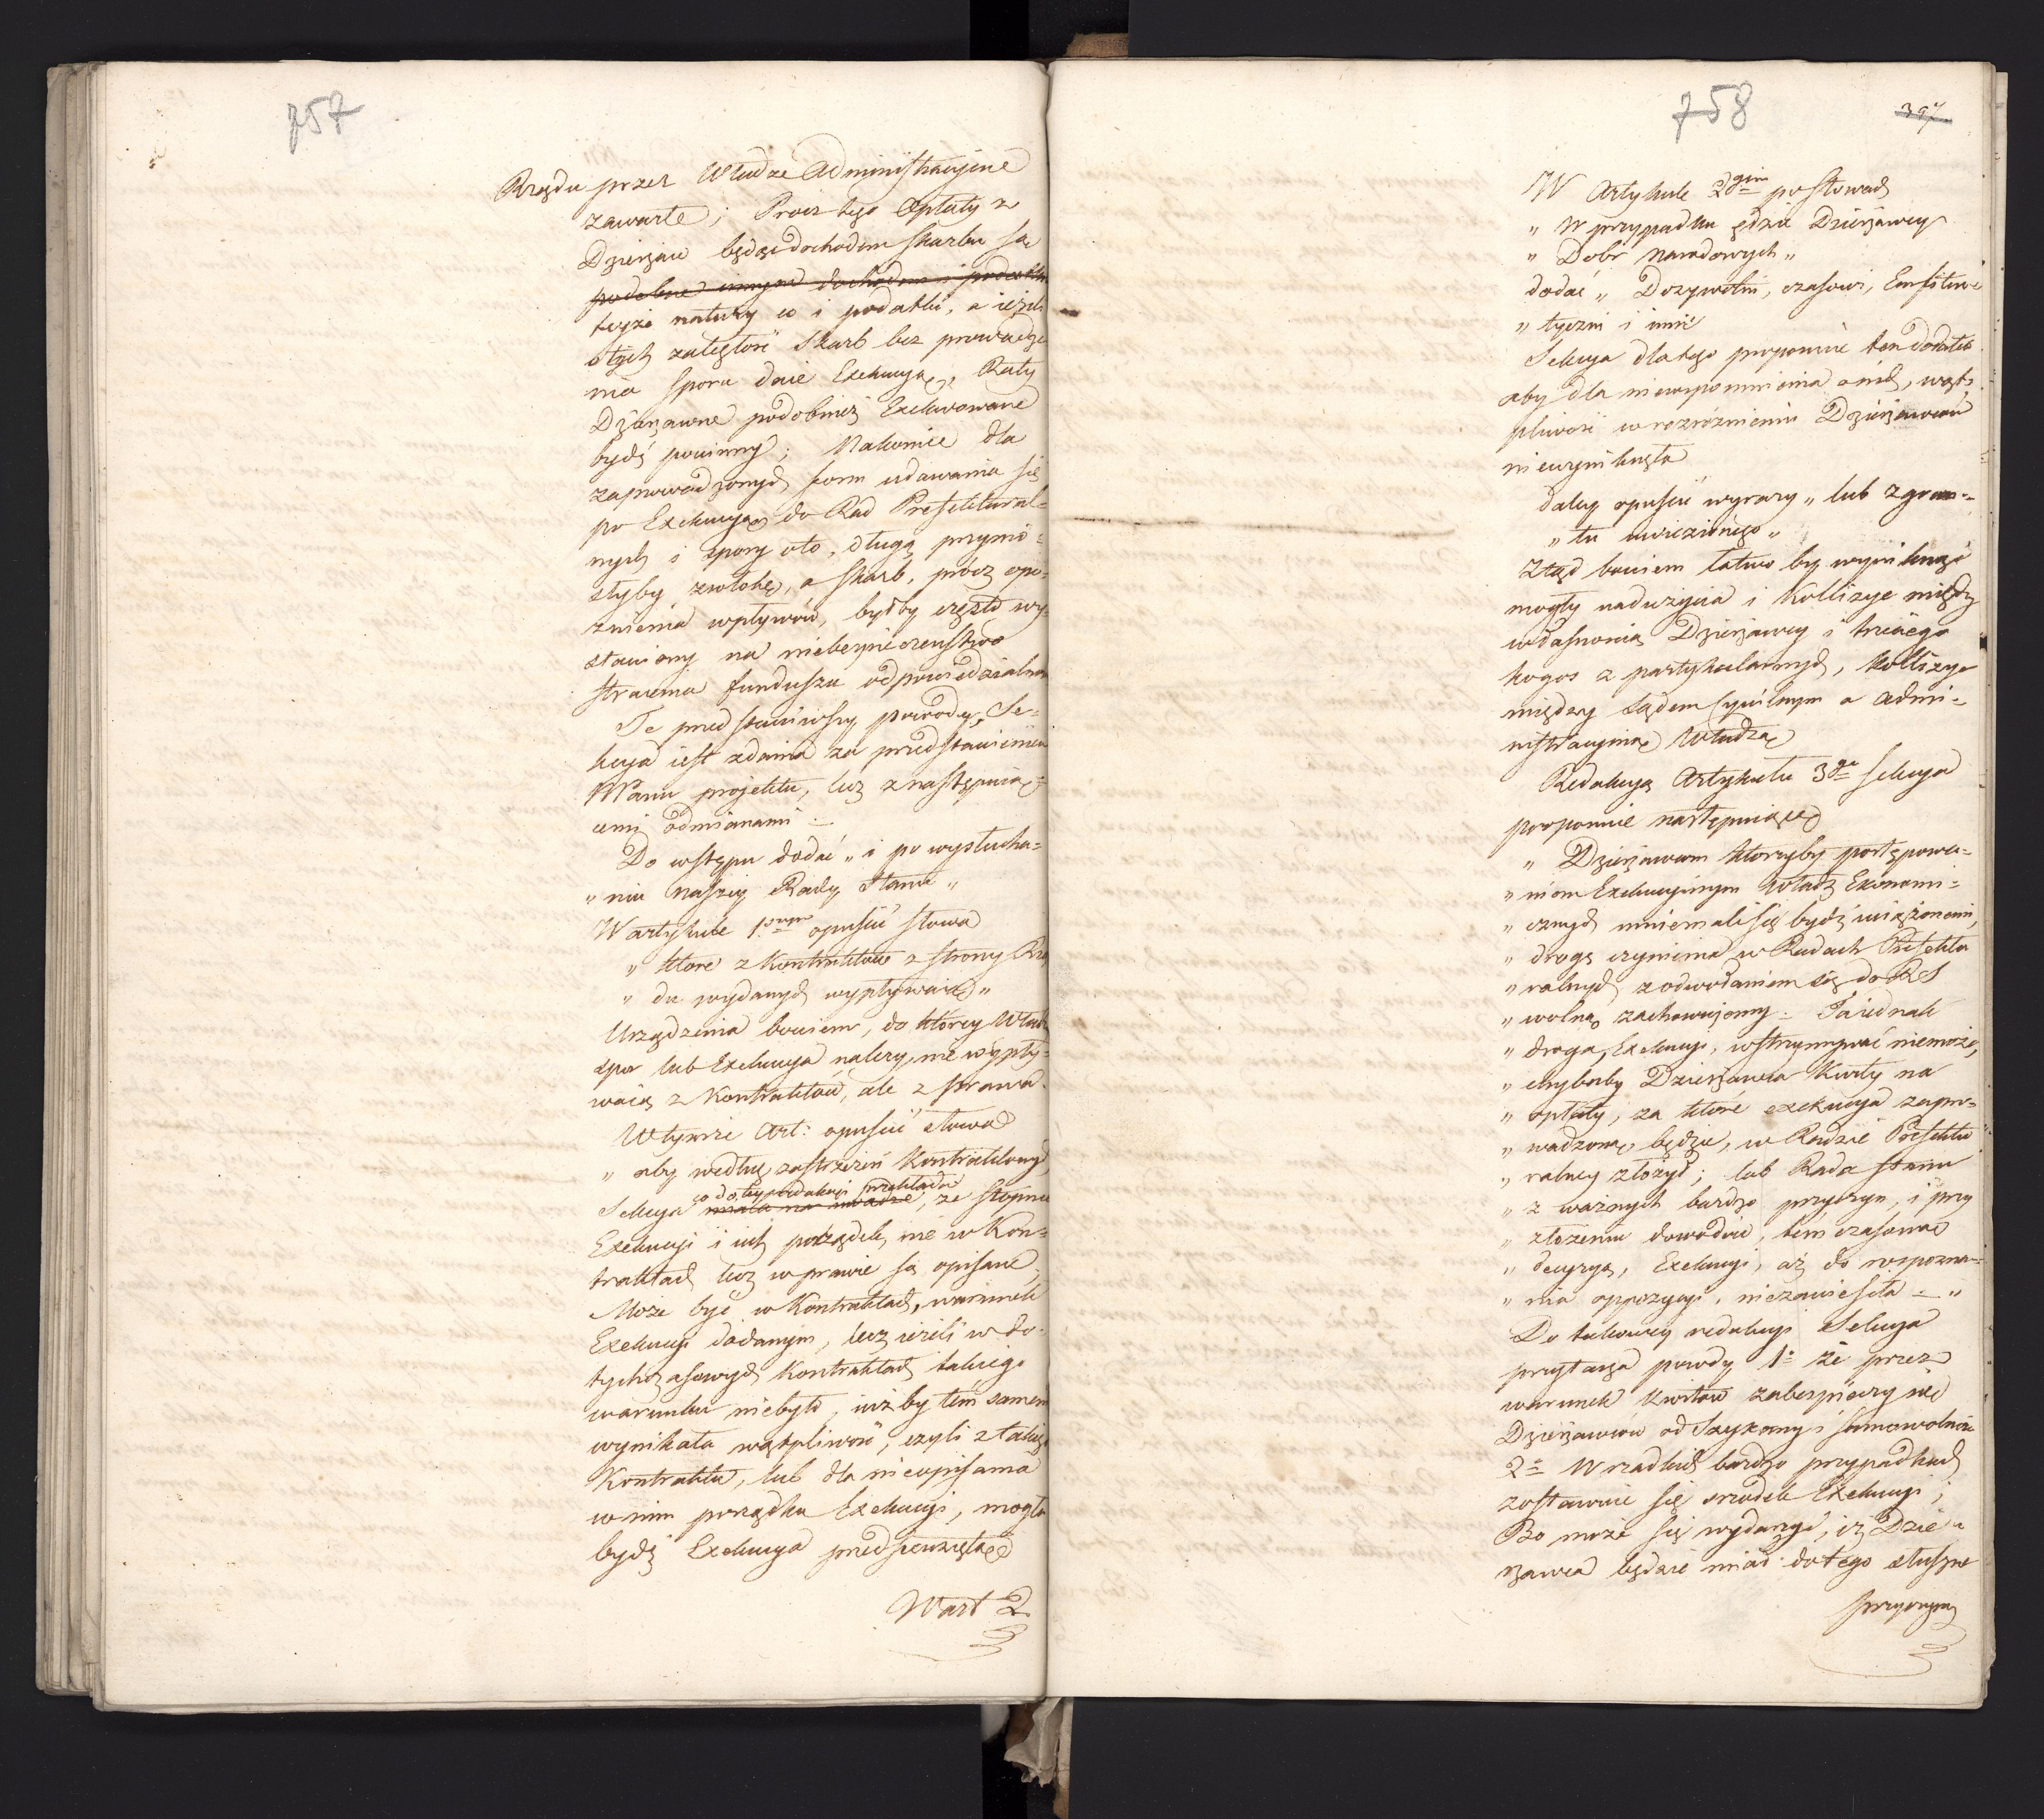 757
Rządu przez Władze Administracyine
zawarte; Prócz tego Opłaty z
Dzierżaw będąc dochodem skarbu są
podobne innym dochodom i podatku
teyże natury co i podatki, a ieżeli
o tych zaległość Skarb bez prowadze
nia sporu daie Exekucyą, Raty
Dzierżawne podobnież Exekwowane
bydź powinny; Nakoniec dla
zaprowadzonych form udawania się
po Exekucyą do Rad Prefektural=
nych i spory oto, długą przynio=
słyby zwłokę, a skarb, prócz opo=
źnienia wpływów, byłby często wy=
stawiony na niebezpieczeństwo
stracenia funduszu odpowiedzialne
Te przedstawiwszy powody, Se=
kcya iest zdania za przedstawieniem
WPanu projektu, lecz z następuią=
cemi odmianami :
Do wstępu dodać „ i po wysłucha=
„ niu naszey Rady Stanu „
W artykule 1wszym opuścić słowa
„ które z Kontraktów z strony Rzą
„ du wydanych wypływaią „
Urządzenia bowiem, do którey Władz
spor lub Exekucya należy, nie wypły=
waią z Kontraktów, ale z prawa.
W tymże Art: opuścić słowa
„ aby według zastrzeżeń Kontraktowych
co do tey redakcyi przekłada
Sekcya miała na uwadze, że stopnie
Exekucyi i ich porządek, nie w Kon=
traktach lecz w prawie są opisane.
Może być w Kontraktach, warunek
Exekucyi dodanym, lecz ieżeli w do=
tychczasowych Kontraktach takiego
warunku niebyło, iużby tém samem
wynikała wątpliwość, czyli z takiego
Kontraktu, lub dla nieopisania
w nim porządku Exekucyi, mogła
bydź Exekucya przedsiewziętą
W art 2
758
397
W Artykule 2gim po słowach
„ W przypadku gdzie Dzierżawcy
„ Dobr Narodowych „
dodać „ Dożywotni, czasowi, Emfiteu=
„ tyczni i inni
Sekcya dlatego proponuie ten dodatek
aby dla niewspomnienia o nich, wąt=
pliwość w rozróżnieniu Dzierżawców
niewyniknęła
daley opuścić wyrazy „ lub z grun=
„ tu uwiezionego „
Ztąd bowiem łatwo by wyniknąć
mogły nadużycia i Kollizye między
własnością Dzierżawcy i trzeciego
kogos z partykularnych, Kollizye
między Sądem Cywilnym a Admi=
nistracyiną Władzą
Redakcyą Artykułu 3go Sekcya
proponuie następuiącą
„ Dzierżawcom którzyby postępowa=
„ niom Exekucyinym Władz Ekonomi=
„ cznych mniemali się bydź uciążonemi,
„ drogę czynienia w Radach Prefektu
„ ralnych z odwołaniem się do R S
„ wolną zachowuiemy : Ta iednak
„ droga, Exekucyi, wstrzymywać niemoże,
„ chybaby Dzierżawca Kwity na
„ opłaty, za które exekucya zapro=
„ wadzoną będzie, w Radzie Prefektu
„ ralney złożył; lub Rada Stanu
„ z ważnych bardzo przyczyn, i przy
„ złożeniu dowodów, tymczasową
„ decyzyą, Exekucyi, aż do rozpozna=
„ nia oppozycyi, niezawiesiła : „
Do takowey redakcyi Sekcya
przytacza powody 1o że przez
warunek Kwitów zabezpieczy się
Dzierżawców od Szykany i samowolności
2o W rzadkich bardzo przypadkach
zostawuie się środek Exekucyi;
Bo może się wydarzyć, iż Dzier=
żawca będzie miał do tego słuszne
przyczyny